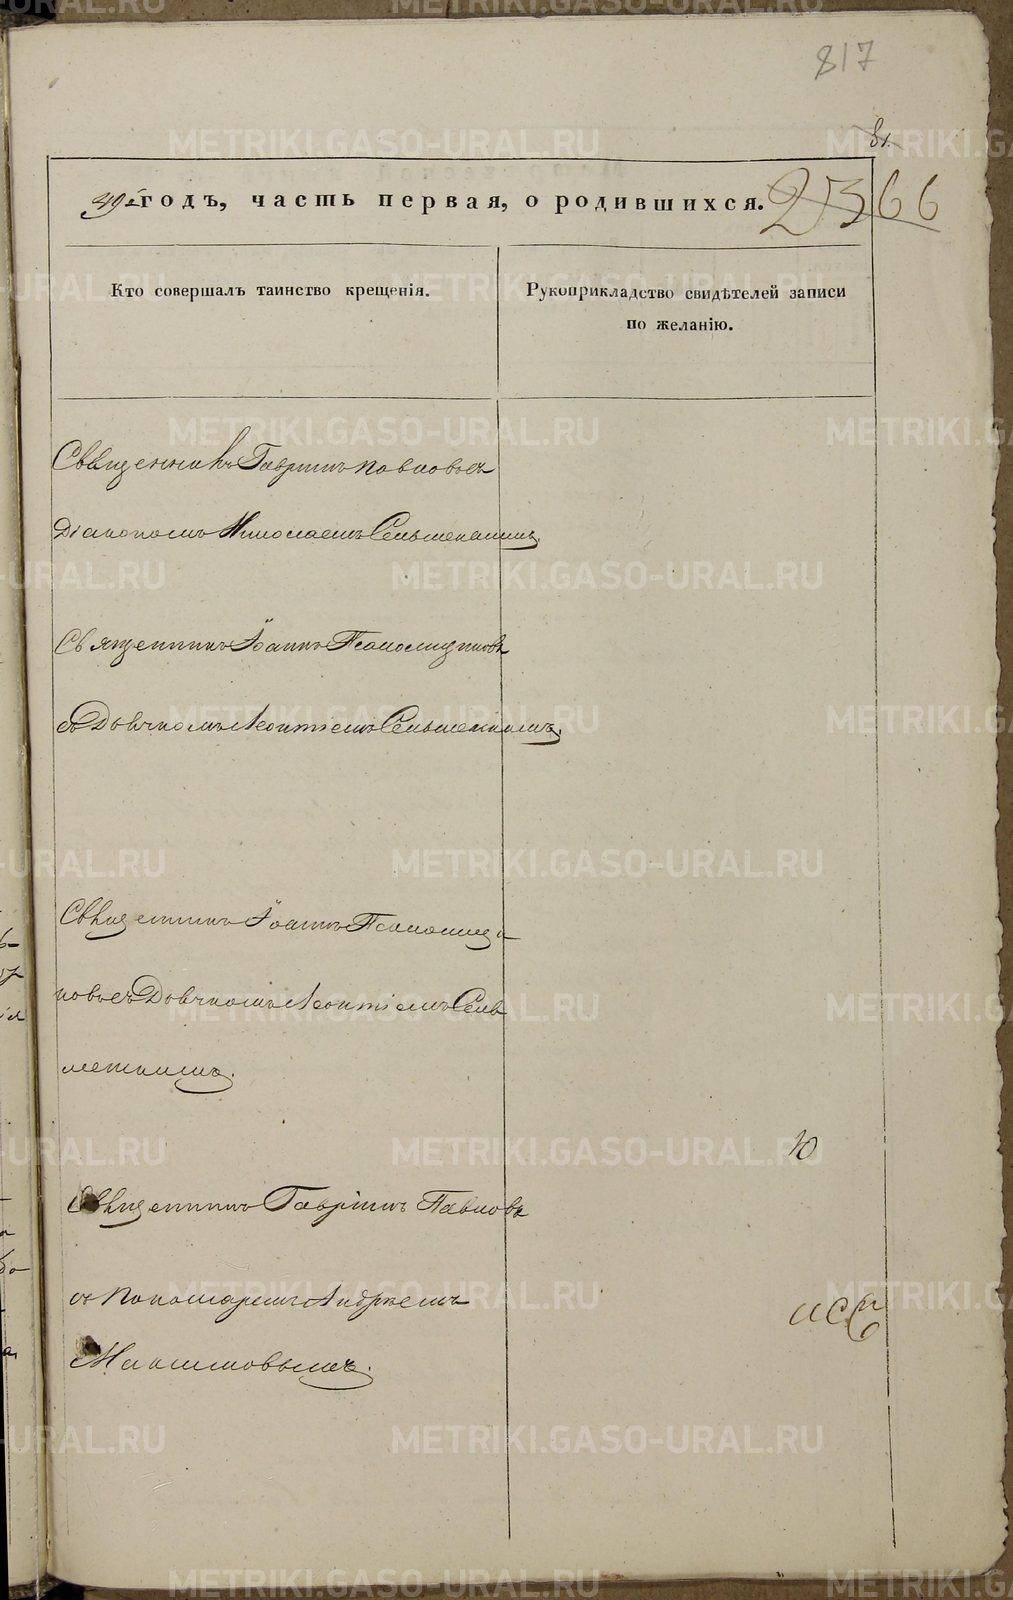 817
81.
2366
49й годъ, часть первая, о родившихся.
Кто совершалъ таинство крещенія.
Рукоприкладство свидѣтелей записи
по желанію.
Священникъ Гавріилъ Павловъ съ
Діакономъ Николаемъ
Священникъ Іоаннъ Псаломщиковъ
съ Дьячкомъ Леонтіемъ
Священникъ Іоаннъ Псаломщи
ковъ съ Дьячкомъ Леонтіемъ
10
Священникъ Гавріилъ Павловъ
съ Пономаремъ Андреемъ
Максимовымъ.
METRIKI.GASO-URAL.RU